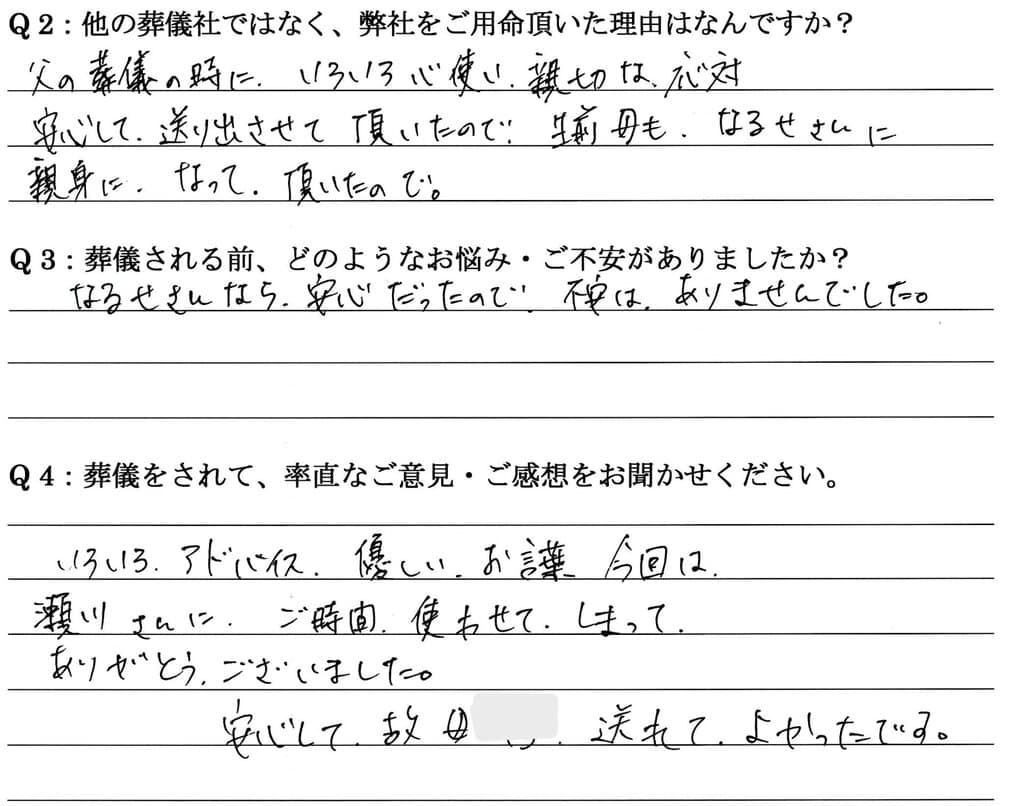 Q2：他の葬儀社ではなく、弊社をご用命頂いた理由はなんですか？
父の葬儀の時に、いろいろ心使い、親切な、応対
安心して、送り出させて頂いたので、生前母も、なるせさんに
親身に、なって、頂いたので。
Q3：葬儀される前、どのようなお悩み・ご不安がありましたか？
なるせさんなら、安心だったので、不安は、ありませんでした。
Q4：葬儀をされて、率直なご意見・ご感想をお聞かせください。
いろいろ、アドバイス、優しい、お言葉 今回は、
瀬川さんに、ご時間、使わせて、しまって、
ありがとう、ございました。
安心して、故母 送れて、よかったです。